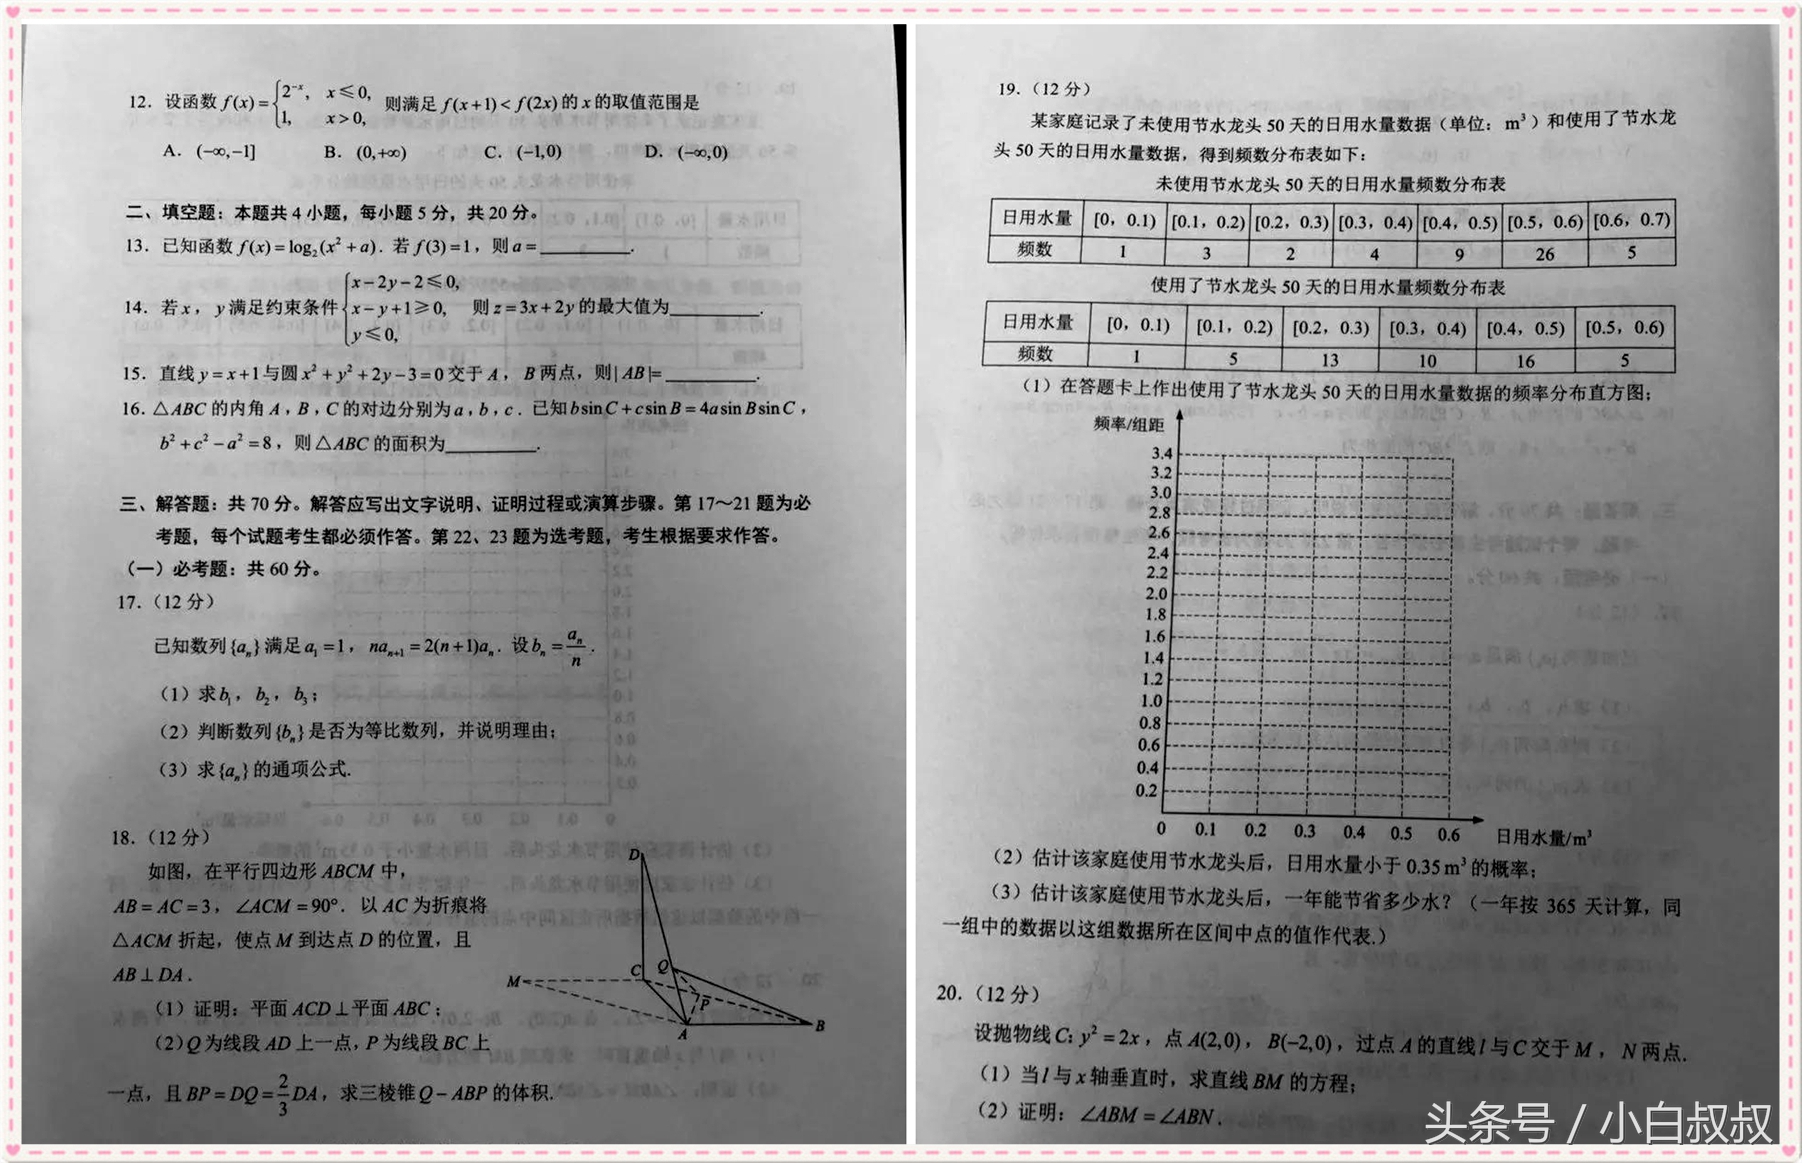 12. 设函数 f(x) = {2^{-x}, x ≤ 0, 1, x > 0, 则满足 f(x+1) < f(2x) 的 x 的取值范围是
A. (-∞,-1] B. (0,+∞) C. (-1,0) D. (-∞,0)
二、填空题：本题共 4 小题，每小题 5 分，共 20 分。
13. 已知函数 f(x) = log₂(x² + a). 若 f(3) = 1，则 a = ________.
14. 若 x，y 满足约束条件 {x - 2y - 2 ≤ 0, x - y + 1 ≥ 0, y ≤ 0, 则 z = 3x + 2y 的最大值为________.
15. 直线 y = x + 1 与圆 x² + y² + 2y - 3 = 0 交于 A，B 两点，则 |AB| = ________.
16. △ABC 的内角 A，B，C 的对边分别为 a，b，c. 已知 b sin C + c sin B = 4a sin B sin C，
b² + c² - a² = 8，则 △ABC 的面积为________.
三、解答题：共 70 分。解答应写出文字说明、证明过程或演算步骤。第 17～21 题为必
考题，每个试题考生都必须作答。第 22、23 题为选考题，考生根据要求作答。
（一）必考题：共 60 分。
17.（12 分）
已知数列{aₙ}满足 a₁ = 1，naₙ₊₁ = 2(n+1)aₙ. 设 bₙ = aₙ/n.
（1）求 b₁，b₂，b₃；
（2）判断数列{bₙ}是否为等比数列，并说明理由；
（3）求{aₙ}的通项公式.
18.（12 分）
如图，在平行四边形 ABCM 中，
AB = AC = 3，∠ACM = 90°. 以 AC 为折痕将
△ACM 折起，使点 M 到达点 D 的位置，且
AB ⊥ DA.
（1）证明：平面 ACD ⊥ 平面 ABC；
（2）Q 为线段 AD 上一点，P 为线段 BC 上
一点，且 BP = DQ = 2/3 DA，求三棱锥 Q - ABP 的体积.
D
C Q
M
P
A
B
19.（12 分）
某家庭记录了未使用节水龙头 50 天的日用水量数据（单位：m³）和使用了节水龙
头 50 天的日用水量数据，得到频数分布表如下：
未使用节水龙头 50 天的日用水量频数分布表
日用水量 [0，0.1) [0.1，0.2) [0.2，0.3) [0.3，0.4) [0.4，0.5) [0.5，0.6) [0.6，0.7)
频数 1 3 2 4 9 26 5
使用了节水龙头 50 天的日用水量频数分布表
日用水量 [0，0.1) [0.1，0.2) [0.2，0.3) [0.3，0.4) [0.4，0.5) [0.5，0.6)
频数 1 5 13 10 16 5
（1）在答题卡上作出使用了节水龙头 50 天的日用水量数据的频率分布直方图；
频率/组距
3.4
3.2
3.0
2.8
2.6
2.4
2.2
2.0
1.8
1.6
1.4
1.2
1.0
0.8
0.6
0.4
0.2
0 0.1 0.2 0.3 0.4 0.5 0.6 日用水量/m³
（2）估计该家庭使用节水龙头后，日用水量小于 0.35 m³ 的概率；
（3）估计该家庭使用节水龙头后，一年能节省多少水？（一年按 365 天计算，同
一组中的数据以这组数据所在区间中点的值作代表.）
20.（12 分）
设抛物线 C：y² = 2x，点 A(2,0)，B(-2,0)，过点 A 的直线 l 与 C 交于 M，N 两点.
（1）当 l 与 x 轴垂直时，求直线 BM 的方程；
（2）证明：∠ABM = ∠ABN.
头条号 / 小白叔叔